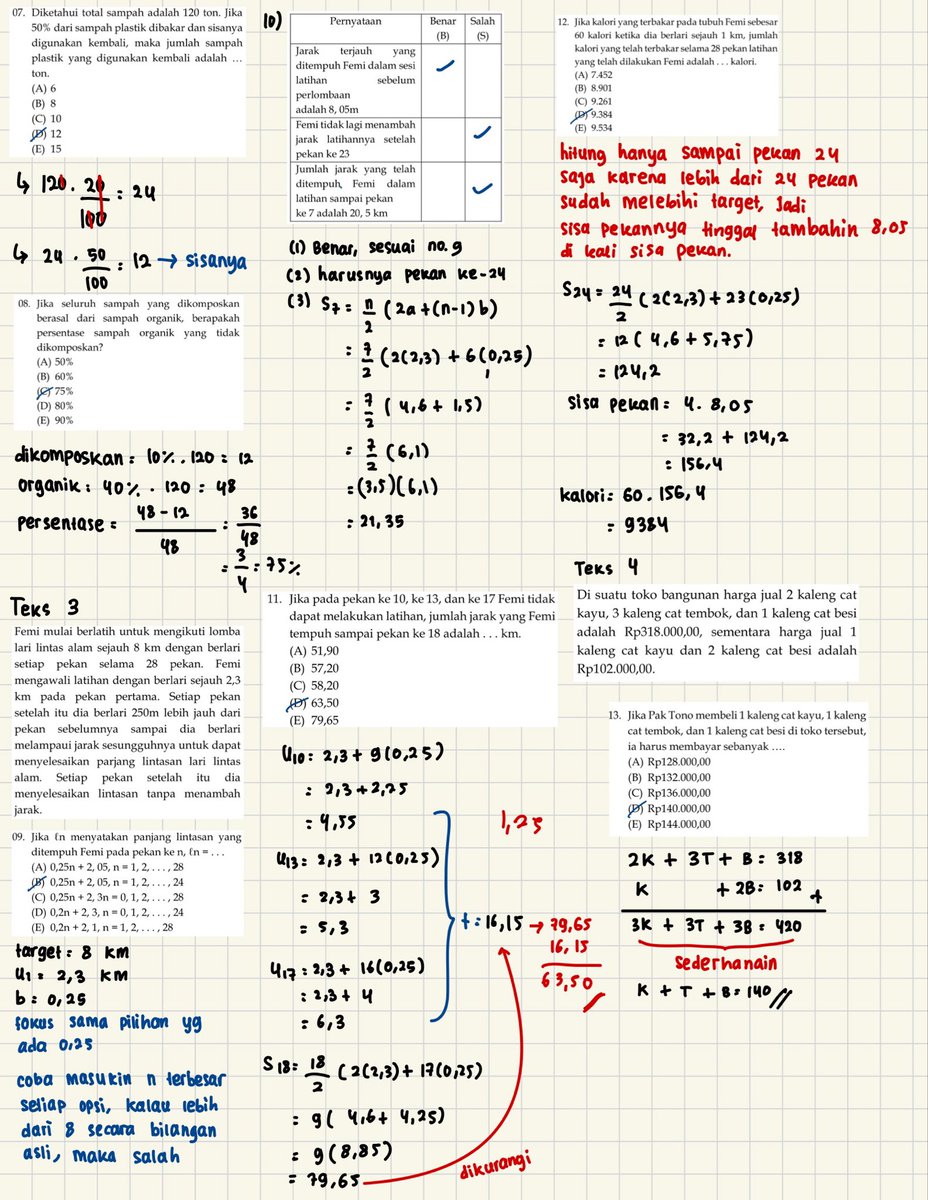 07. Diketahui total sampah adalah 120 ton. Jika
50% dari sampah plastik dibakar dan sisanya
digunakan kembali, maka jumlah sampah
plastik yang digunakan kembali adalah …
ton.
(A) 6
(B) 8
(C) 10
(D) 12
(E) 15
↳ 120 . 20/100 = 24
↳ 24 . 50/100 = 12 → sisanya
08. Jika seluruh sampah yang dikomposkan
berasal dari sampah organik, berapakah
persentase sampah organik yang tidak
dikomposkan?
(A) 50%
(B) 60%
(C) 75%
(D) 80%
(E) 90%
dikomposkan = 10% . 120 = 12
organik : 40% . 120 = 48
persentase = 48 - 12/48 = 36/48
= 3/4 = 75%
Teks 3
Femi mulai berlatih untuk mengikuti lomba
lari lintas alam sejauh 8 km dengan berlari
setiap pekan selama 28 pekan. Femi
mengawali latihan dengan berlari sejauh 2,3
km pada pekan pertama. Setiap pekan
setelah itu dia berlari 250m lebih jauh dari
pekan sebelumnya sampai dia berlari
melampaui jarak sesungguhnya untuk dapat
menyelesaikan parjang lintasan lari lintas
alam. Setiap pekan setelah itu dia
menyelesaikan lintasan tanpa menambah
jarak.
09. Jika ℓn menyatakan panjang lintasan yang
ditempuh Femi pada pekan ke n, ℓn = . . .
(A) 0,25n + 2, 05, n = 1, 2, . . . , 28
(B) 0,25n + 2, 05, n = 1, 2, . . . , 24
(C) 0,25n + 2, 3n = 0, 1, 2, . . . , 28
(D) 0,2n + 2, 3, n = 0, 1, 2, . . . , 24
(E) 0,2n + 2, 1, n = 1, 2, . . . , 28
target = 8 km
u1 = 2,3 km
b = 0,25
fokus sama pilihan yg
ada 0,25
coba masukin n terbesar
setiap opsi, kalau lebih
dari 8 secara bilangan
asli, maka salah
10)
Pernyataan Benar Salah
(B) (S)
Jarak terjauh yang
ditempuh Femi dalam sesi
latihan sebelum
perlombaan
adalah 8, 05m
Femi tidak lagi menambah
jarak latihannya setelah
pekan ke 23
Jumlah jarak yang telah
ditempuh, Femi dalam
latihan sampai pekan
ke 7 adalah 20, 5 km
(1) Benar, sesuai no. 9
(2) harusnya pekan ke-24
(3) S7 = n/2 (2a+(n-1)b)
= 7/2 (2(2,3) + 6(0,25)
= 7/2 (4,6 + 1,5)
= 7/2 (6,1)
= (3,5)(6,1)
= 21,35
11. Jika pada pekan ke 10, ke 13, dan ke 17 Femi tidak
dapat melakukan latihan, jumlah jarak yang Femi
tempuh sampai pekan ke 18 adalah . . . km.
(A) 51,90
(B) 57,20
(C) 58,20
(D) 63,50
(E) 79,65
U10 = 2,3 + 9(0,25)
= 2,3+2,25
= 4,55
1,25
U13 = 2,3 + 12(0,25)
= 2,3+ 3
= 5,3
U17 = 2,3 + 16(0,25)
= 2,3+ 4
= 6,3
t = 16,15 → 79,65
16,15
63,50
S18 = 18/2 (2(2,3)+ 17(0,25)
= 9( 4,6+ 4,25)
= 9(8,85)
= 79,65
dikurangi
12. Jika kalori yang terbakar pada tubuh Femi sebesar
60 kalori ketika dia berlari sejauh 1 km, jumlah
kalori yang telah terbakar selama 28 pekan latihan
yang telah dilakukan Femi adalah . . . kalori.
(A) 7.452
(B) 8.901
(C) 9.261
(D) 9.384
(E) 9.534
hitung hanya sampai pekan 24
saja karena lebih dari 24 pekan
sudah melebihi target, Jadi
sisa pekannya tinggal tambahin 8,05
di kali sisa pekan.
S24 = 24/2 (2(2,3) + 23(0,25)
= 12 ( 4,6 + 5,75)
= 124,2
sisa pekan = 4. 8,05
= 32,2 + 124,2
= 156,4
kalori = 60 . 156,4
= 9384
Teks 4
Di suatu toko bangunan harga jual 2 kaleng cat
kayu, 3 kaleng cat tembok, dan 1 kaleng cat besi
adalah Rp318.000,00, sementara harga jual 1
kaleng cat kayu dan 2 kaleng cat besi adalah
Rp102.000,00.
13. Jika Pak Tono membeli 1 kaleng cat kayu, 1 kaleng
cat tembok, dan 1 kaleng cat besi di toko tersebut,
ia harus membayar sebanyak ….
(A) Rp128.000,00
(B) Rp132.000,00
(C) Rp136.000,00
(D) Rp140.000,00
(E) Rp144.000,00
2K + 3T + B = 318
K + 2B = 102 +
3K + 3T + 3B = 420
sederhanain
K + T + B = 140 //